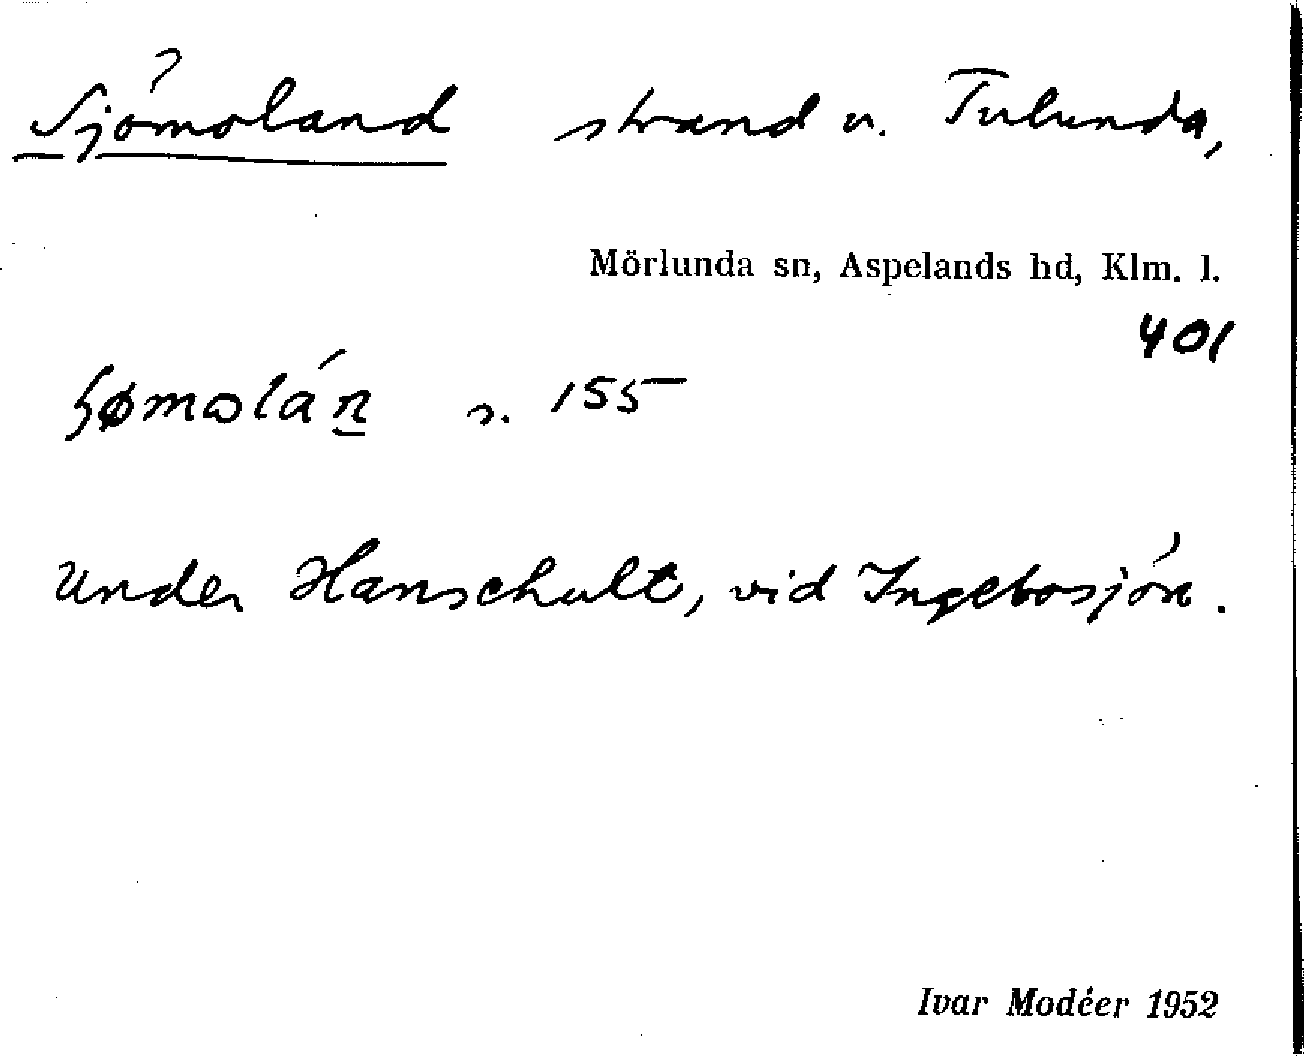 Sjömoland strand u. Tulunda,
Mörlunda sn, Aspelands hd, Klm. l.
401
s. 155
Under Hanschult, vid Ingebosjön.
Ivar Modéer 1952